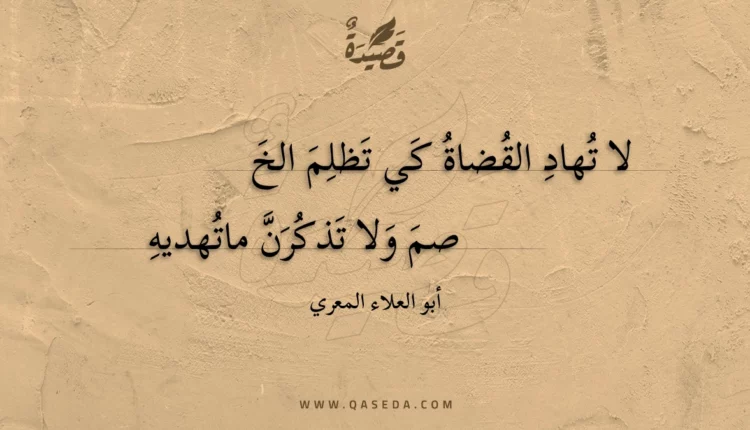 قَصِيدَةٌ
لا تُهادِ القُضاةُ كَي تَظلِمَ الخَ
صمَ وَلا تَذكُرَنَّ ماتُهديهِ
أبو العلاء المعري
WWW.QASEDA.COM